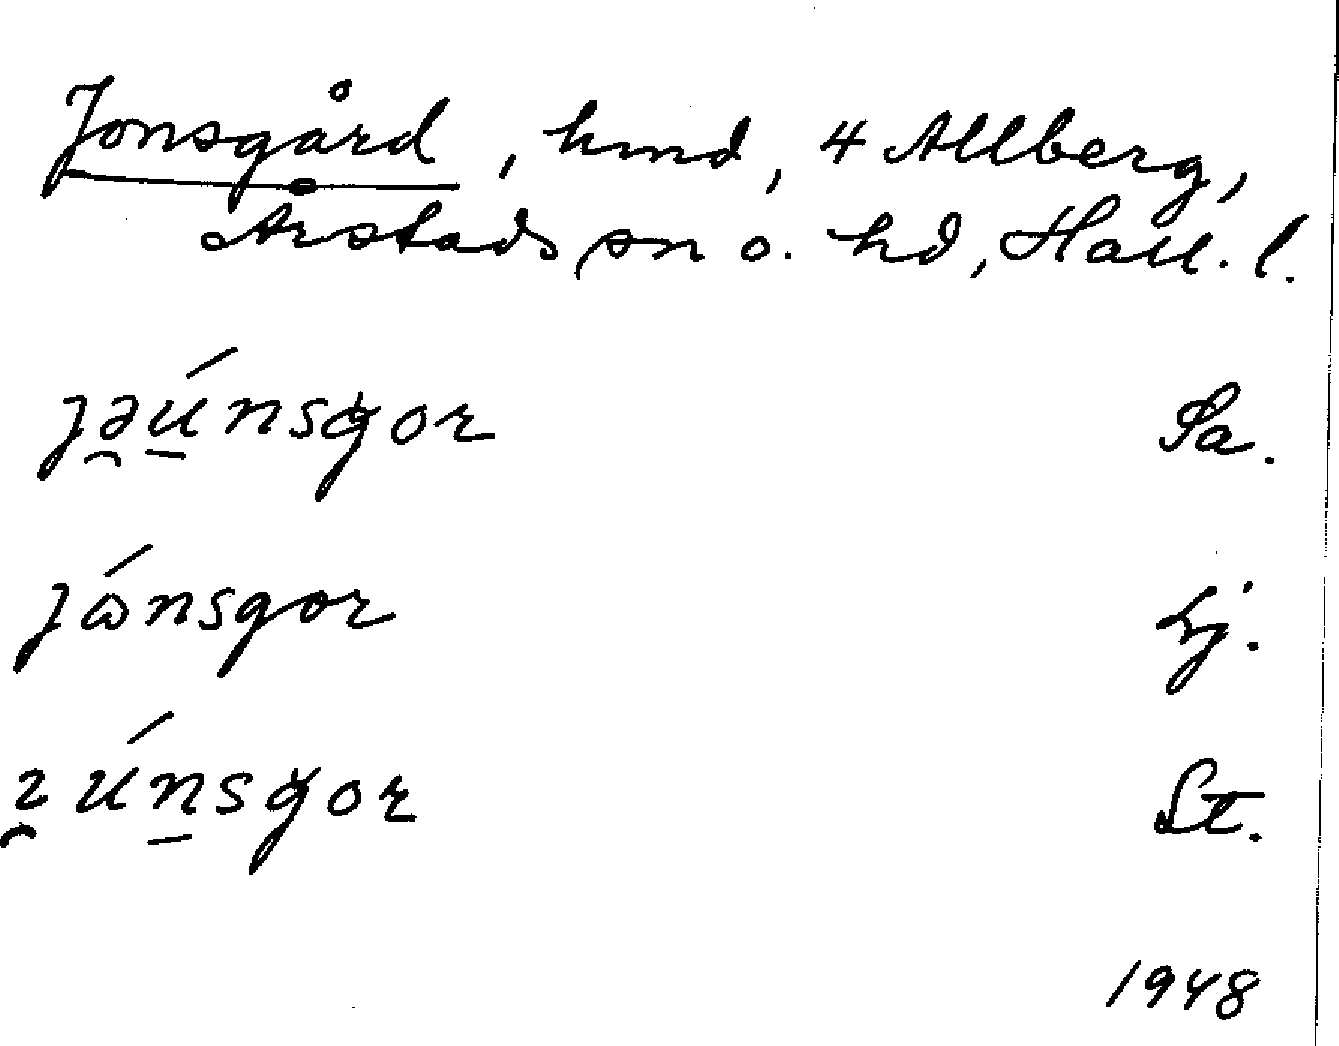 Jonsgård, hmd, 4 Allberg,
Årstads sn o. hd, Hall. l.
jəúnsgor Sa.
jónsgor Lj.
ɪúnsgor St.
1948